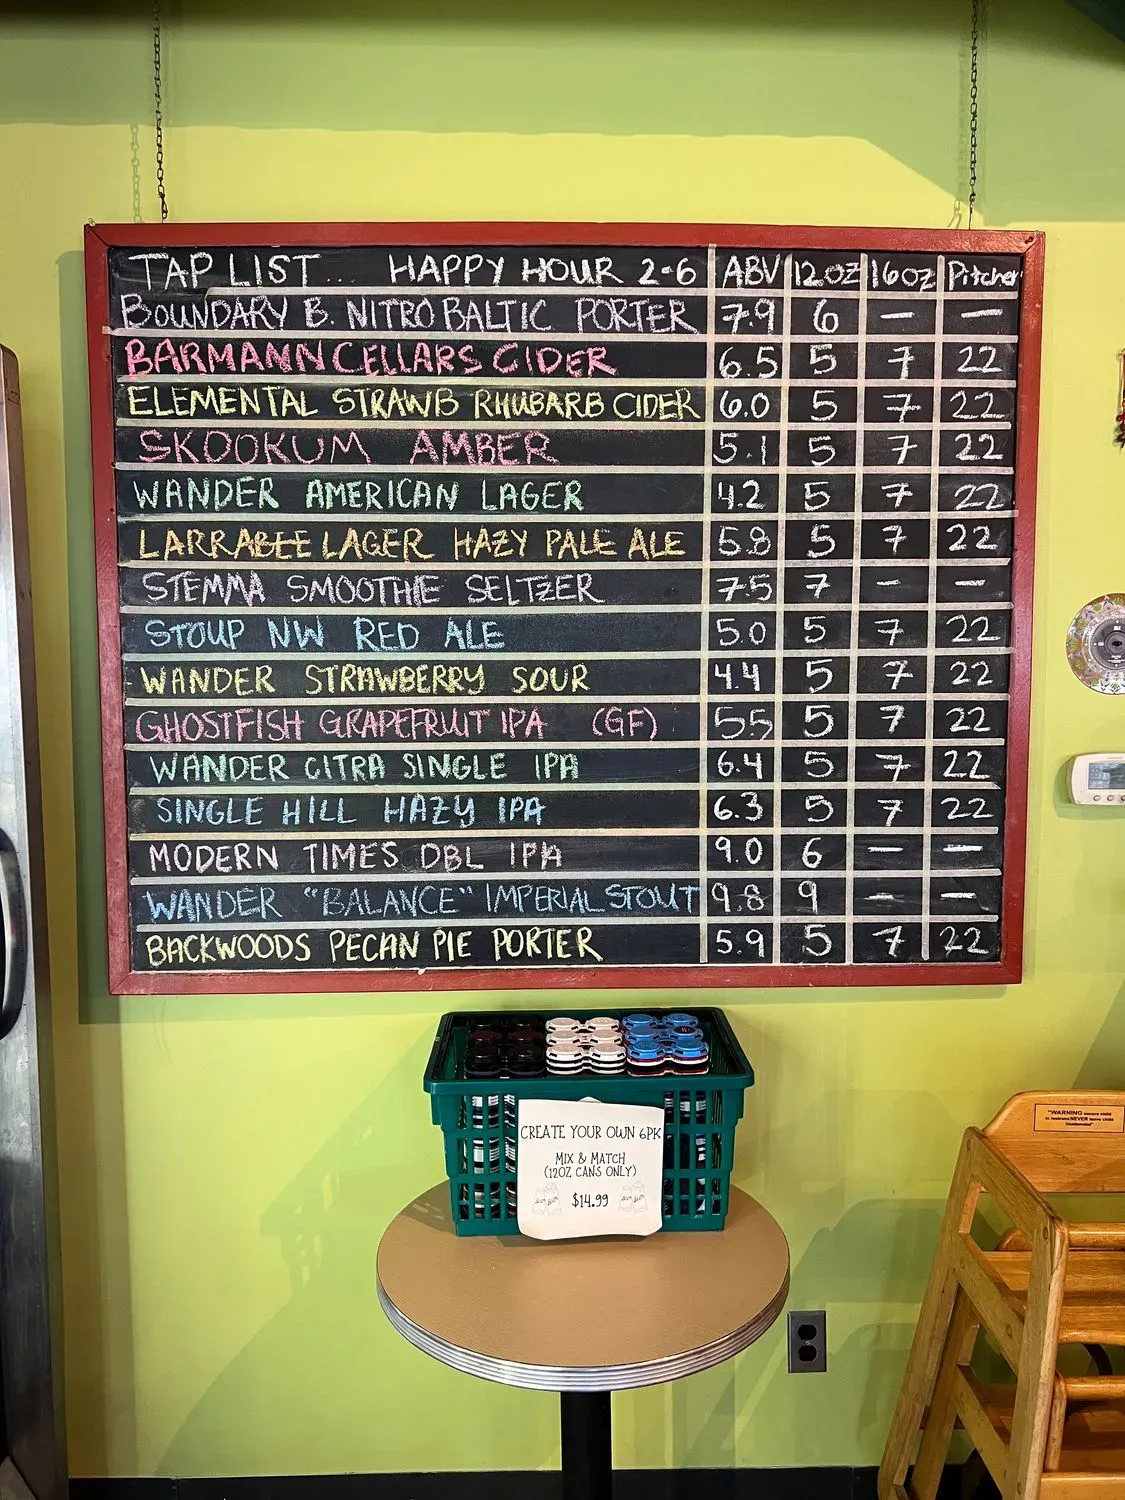 TAP LIST... HAPPY HOUR 2-6 ABV 12OZ 16OZ Pitcher
BOUNDARY B. NITRO BALTIC PORTER 7.9 6 — —
BARMANN CELLARS CIDER 6.5 5 7 22
ELEMENTAL STRAWB RHUBARB CIDER 6.0 5 7 22
SKOOKUM AMBER 5.1 5 7 22
WANDER AMERICAN LAGER 4.2 5 7 22
LARRABEE LAGER HAZY PALE ALE 5.8 5 7 22
STEMMA SMOOTHIE SELTZER 7.5 7 — —
STOUP NW RED ALE 5.0 5 7 22
WANDER STRAWBERRY SOUR 4.4 5 7 22
GHOSTFISH GRAPEFRUIT IPA (GF) 5.5 5 7 22
WANDER CITRA SINGLE IPA 6.4 5 7 22
SINGLE HILL HAZY IPA 6.3 5 7 22
MODERN TIMES DBL IPA 9.0 6 — —
WANDER "BALANCE" IMPERIAL STOUT 9.8 9 — —
BACKWOODS PECAN PIE PORTER 5.9 5 7 22
CREATE YOUR OWN 6PK
MIX & MATCH
(12OZ CANS ONLY)
$14.99
"WARNING secure child
in restraint NEVER leave child
Unattended"